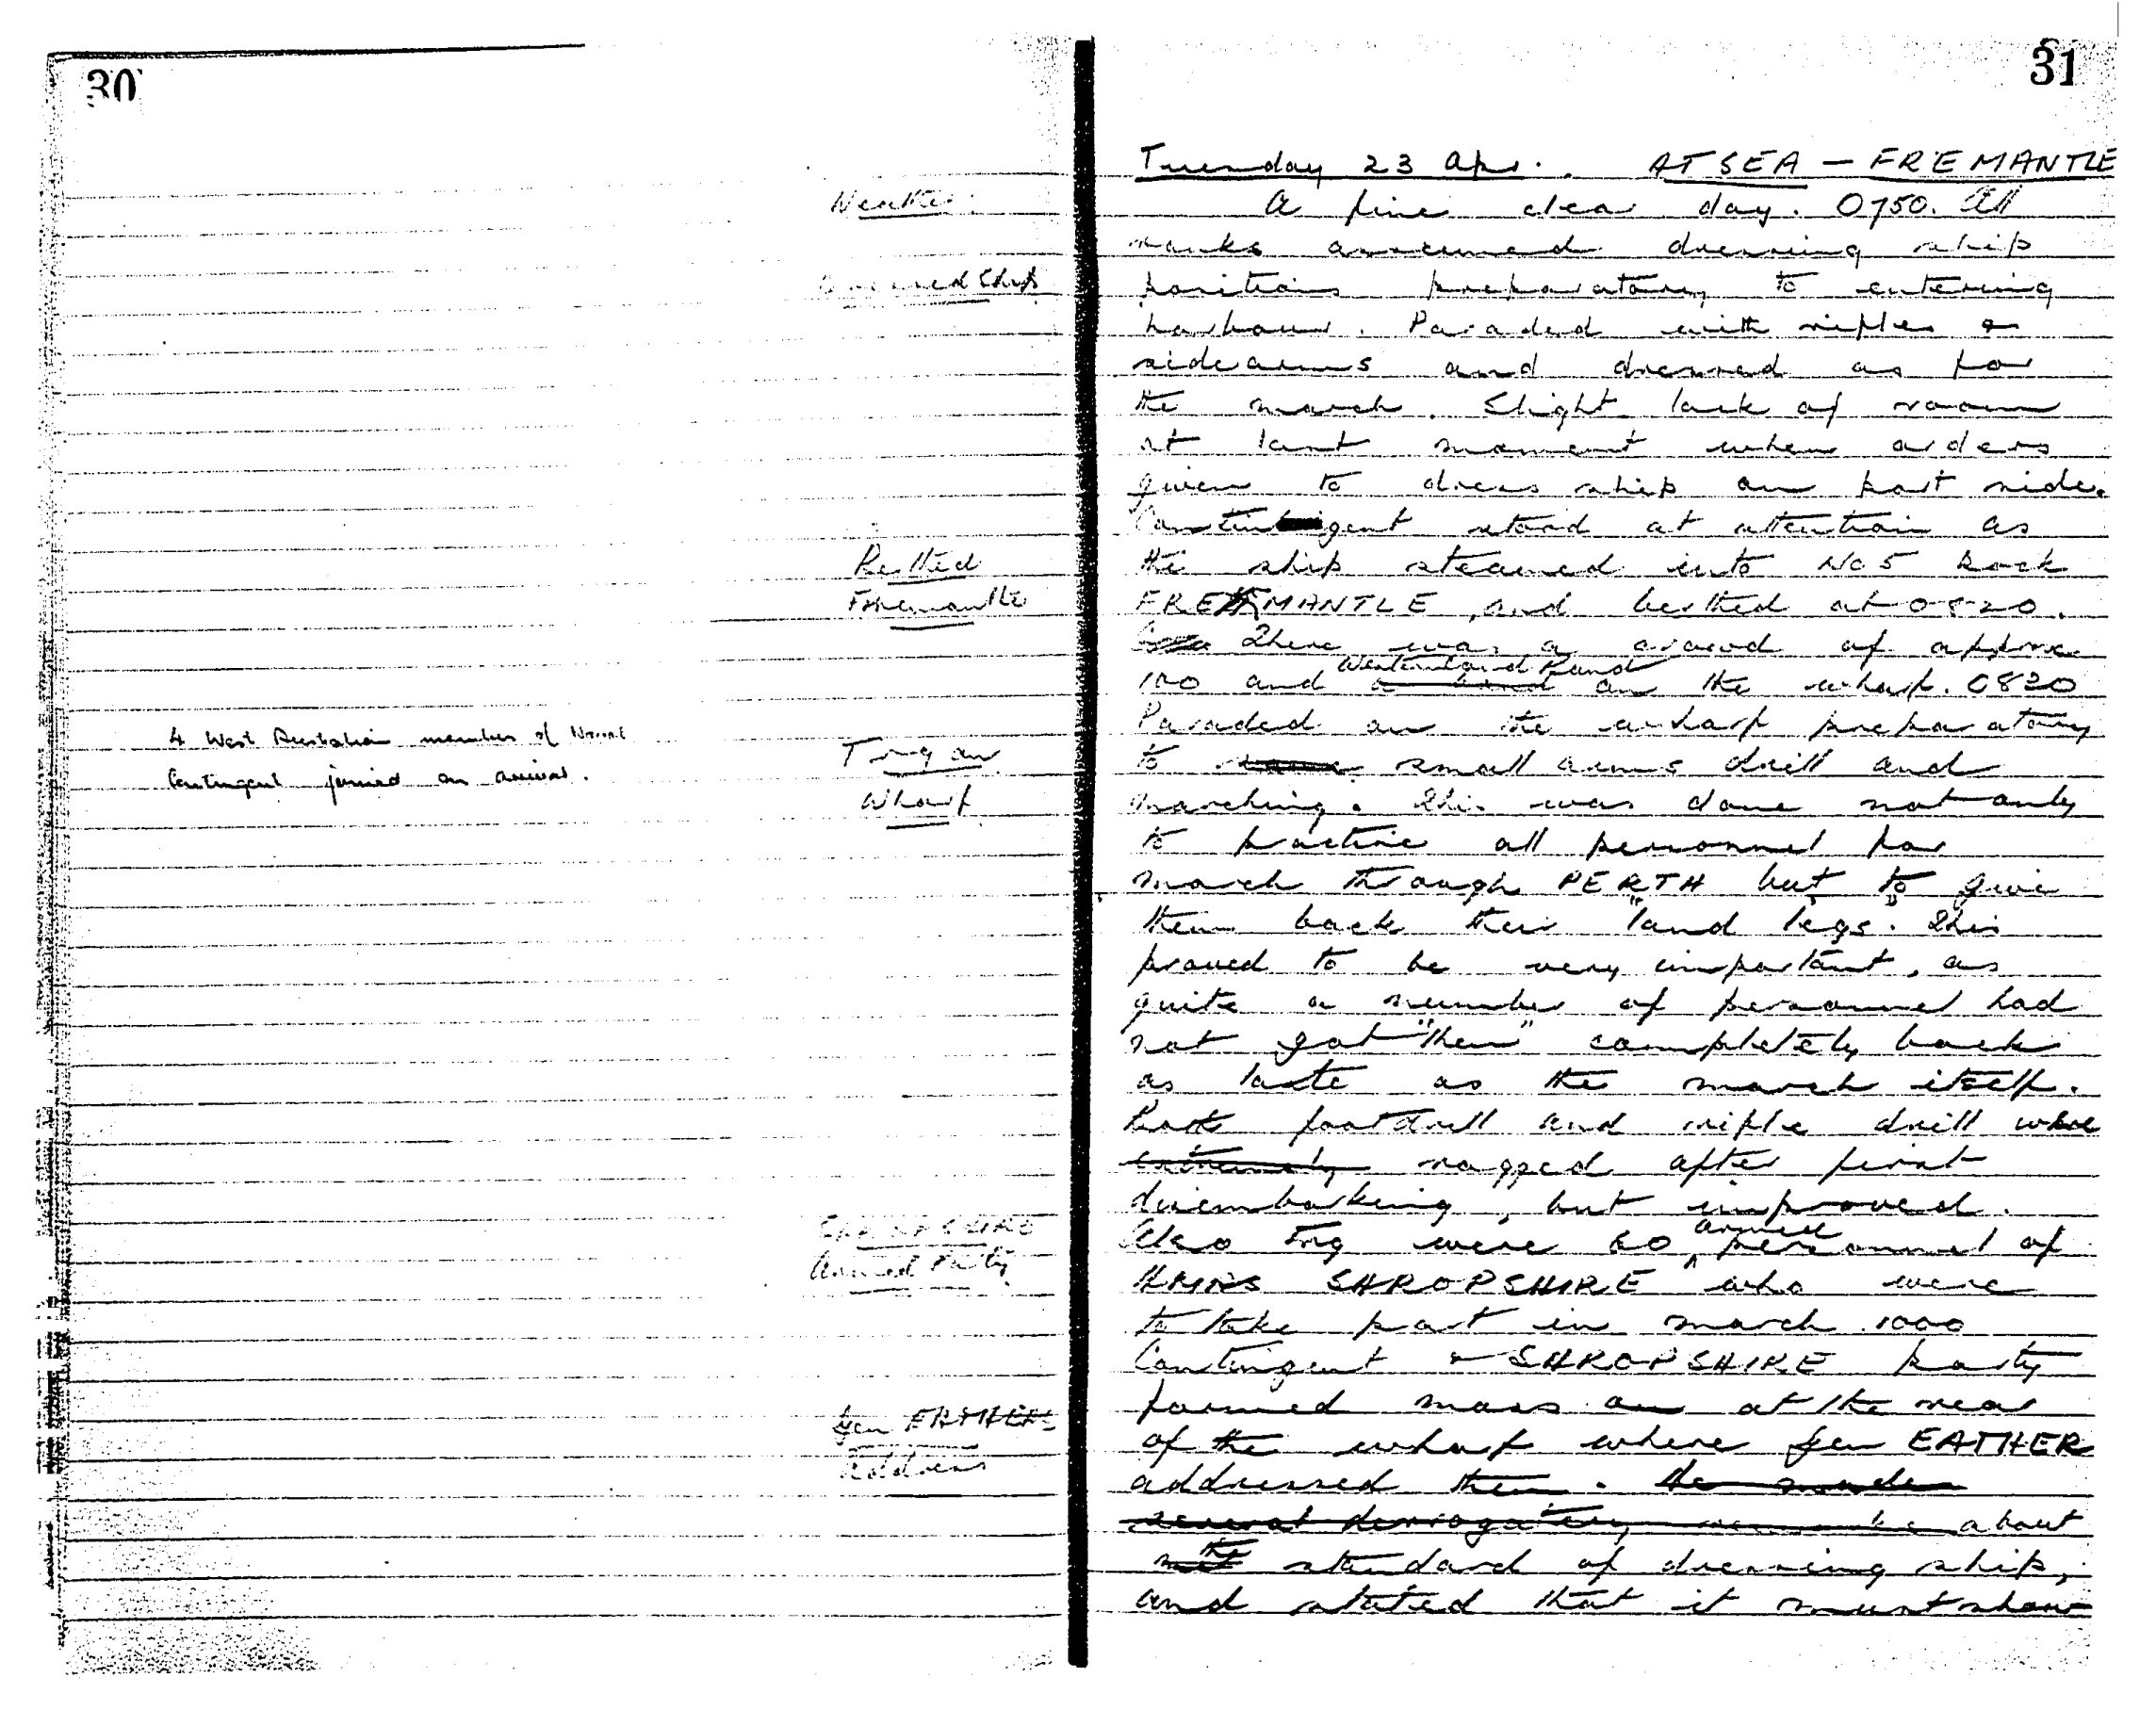 30
Weather
Dressed Ship
Berthed
Fremantle
4 West Australian member of Naval
Contingent joined on arrival.
Trg on
Wharf
SHROPSHIRE
Armed Party
Gen EATHER
Address
31
Tuesday 23 Apr. AT SEA - FREMANTLE
A fine clear day. 0750. All
ranks assumed dressing ship
positions preparatory to entering
harbour. Paraded with rifles &
sidearms and dressed as for
the march. Slight lack of room
at last moment when orders
given to dress ship on port side.
Contingent stood at attention as
the ship steamed into No 5 Dock
FREMANTLE, and berthed at 0820.
There was a crowd of approx
100 and Westernland Band a band on the wharf. 0820
Paraded on the wharf preparatory
to small arms drill and
marching. This was done not only
to practice all personnel for
march through PERTH but to give
them back their "land legs". This
proved to be very important, as
quite a number of personnel had
not got "them" completely back
as late as the march itself.
Both footdrill and rifle drill were
extremely ragged after first
disembarking, but improved.
Also Trg were 60 armed personnel of
HMAS SHROPSHIRE who were
to take part in march. 1000
Contingent & SHROPSHIRE party
formed mass on at the rear
of the wharf where Gen EATHER
addressed them. He made
several derrogatory remarks about
the standard of dressing ship,
and stated that it must show